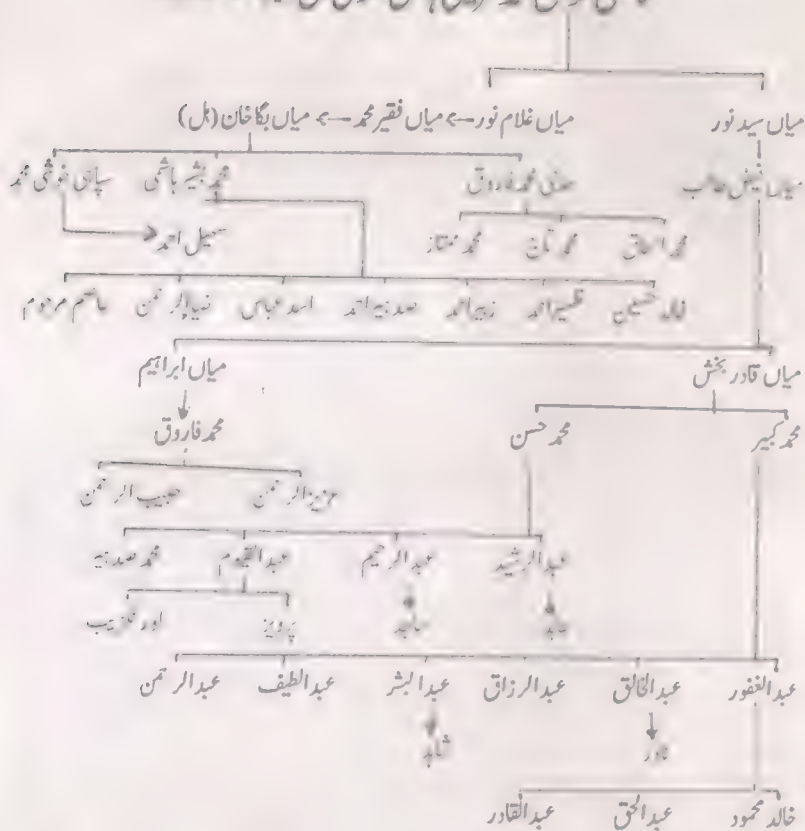 میاں سید نور میاں غلام نور –> میاں فقیر محمد –> میاں بگا خان (ہل)
میاں فیض طالب محمد فاروق محمد بشیر ہاشمی سپاہی خوشی محمد
محمد اسحاق محمد تاج محمد ممتاز سہیل احمد
خالد حسین ظہیر احمد زبیر احمد احمد اسد عباس ضیاء الرحمن عاصم مرحوم
میاں قادر بخش میاں ابراہیم
محمد کبیر محمد حسن محمد فاروق
عزیز الرحمن حبیب الرحمن
عبدالرشید عبدالرحیم عبدالقیوم محمد
ساجد پرویز اورنگزیب
عبدالغفور عبدالخالق عبدالرزاق عبدالبشر عبدالطیف عبدالرحمن
نادر شاہد
خالد محمود عبدالحق عبدالقادر